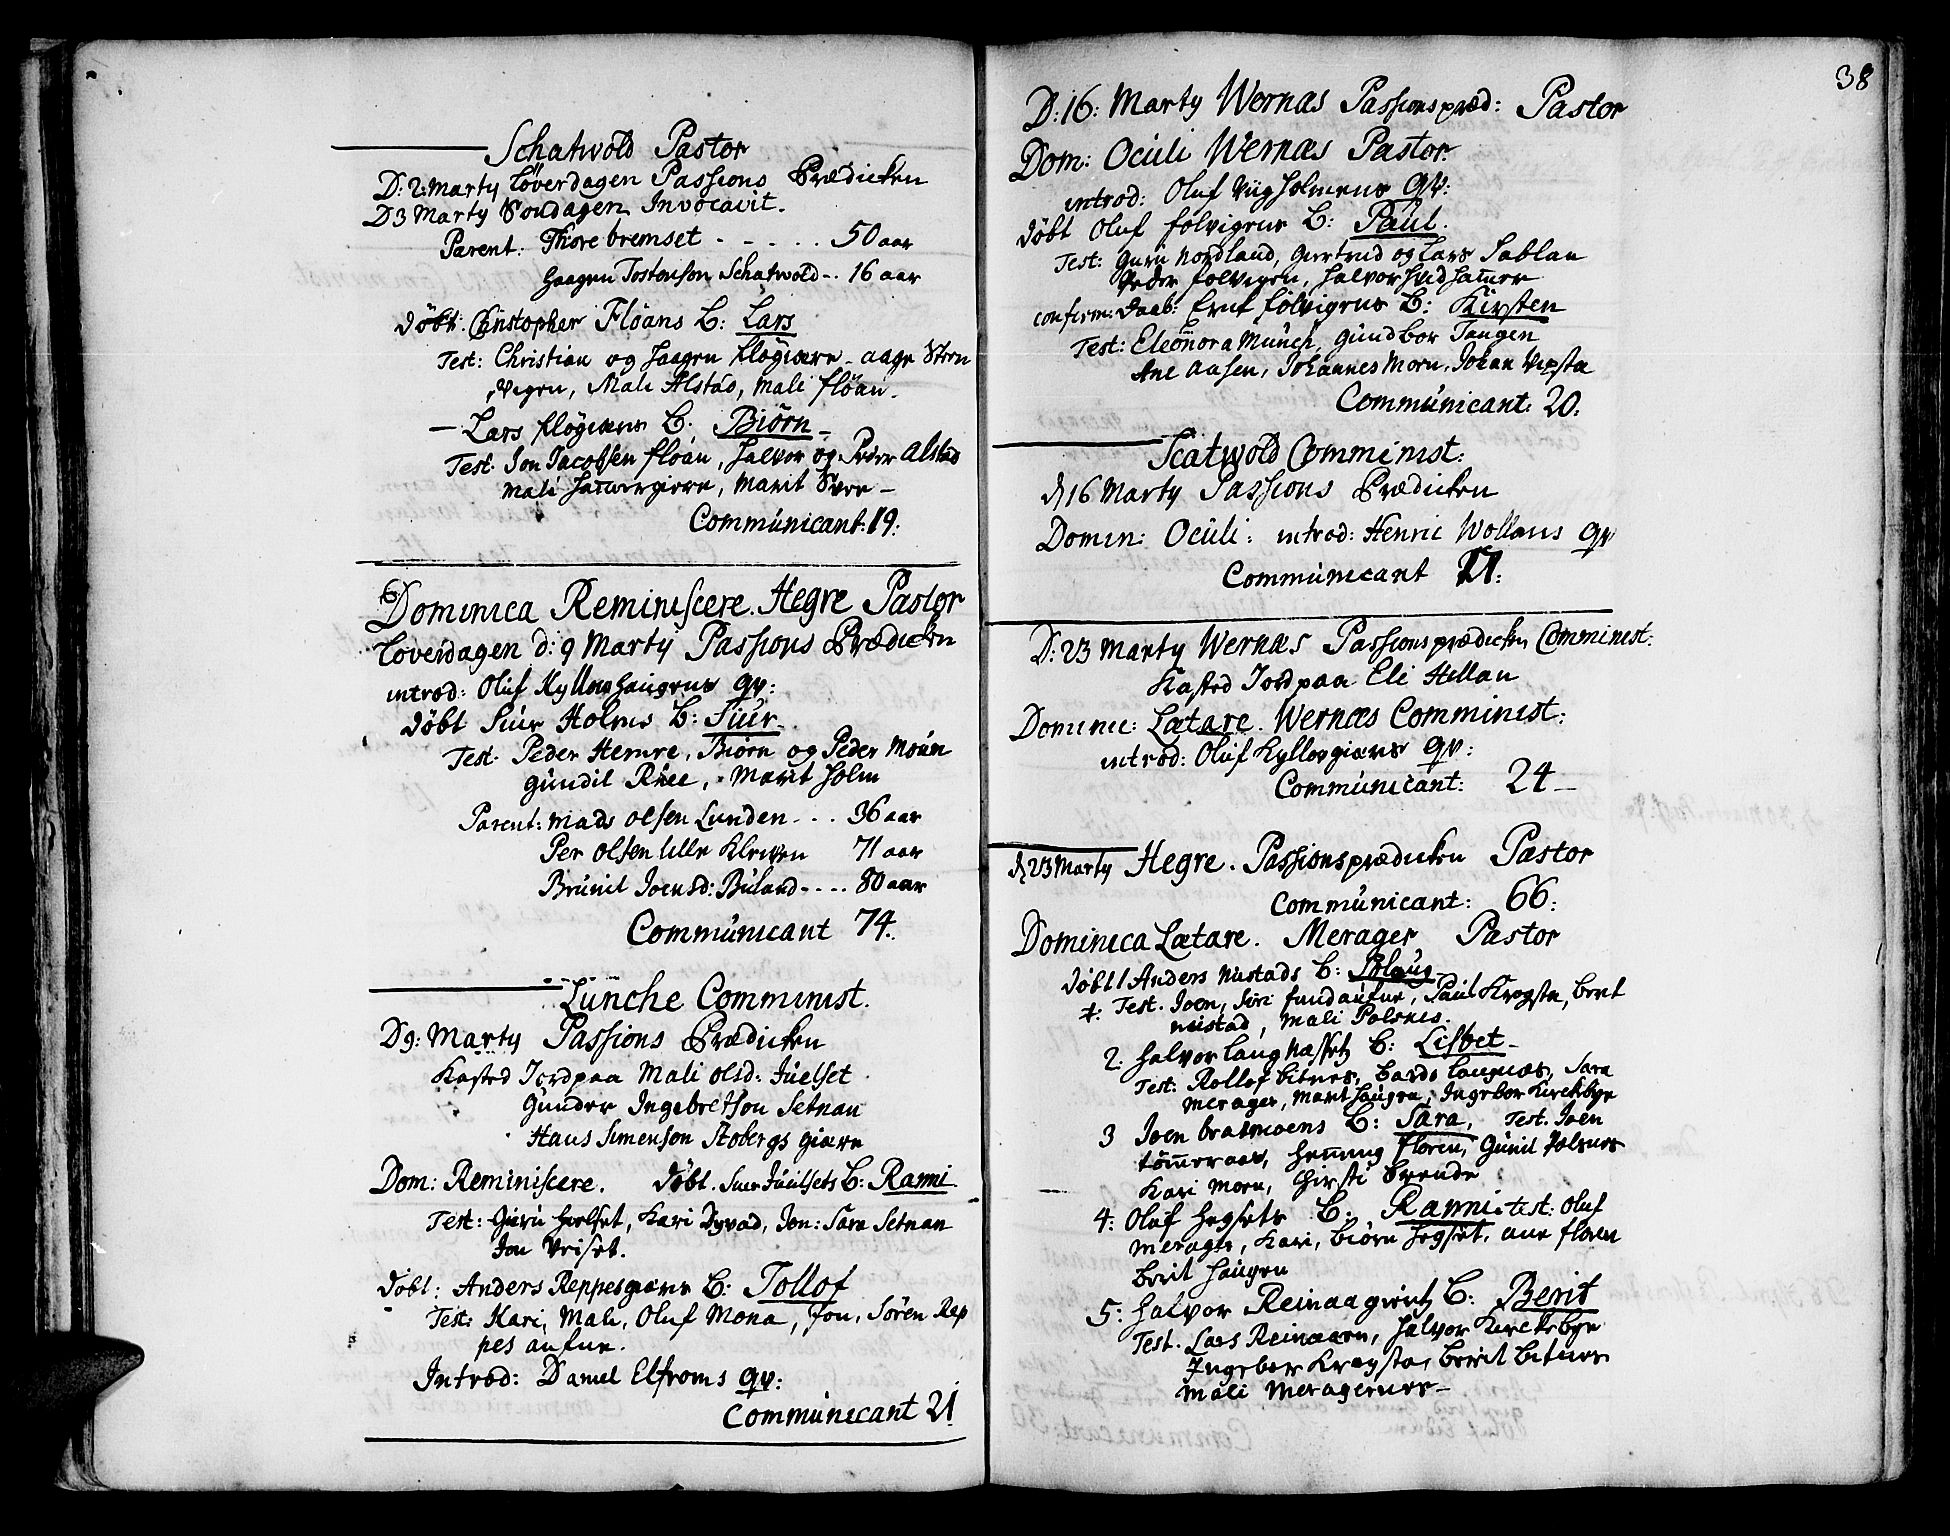 Schatwold Pastor
D: 2: Marty Löverdagen Passions Prædicken
D 3 Marty Söndagen Invocavit.
Parent: Thore bremset - - - . . 50 aar
Haagen Tostenson Schatwold - . 16 aar
döbt: Christopher Flöans B: Lars
Test: Christian og Haagen Klögiære - aage Steen
vegen, Mali Alstad, Mali flöan.
— Lars Klögiærs B. Biörn -
Test. Jon Jacobsen flöan, Halvor og Peder Alstad
Mali, Marit Sven -
Communicant: 19:
Dominica Reminiscere. Hegre Pastor
Löverdagen d: 9 Marty Passions Prædicken
introd: Oluf Kyllos haugens qv:
döbt Siur Holms B: Siur -
Test. Peder Hemre, Biörn og Peder Moum
Gundil Rÿee, Marit Holm
Parent: Mads Olsen Lunden - . . 36 aar
Per Olsen lille Kleven 71 aar
Brunil Joensd: Buland - . . . 80 aar
Communicant 74.
Lunche Comminist.
D 9: Marty Passions Prædicken
Kasted Jord paa Mali olsd: Juelset
Gunder Ingebretson Setnan
Hans Simenson Stobergs giære
Dom: Reminiscere. döbt. Siur Juulsets B: Ranni
Test: Guru Hoelset, Kari Dyvad, Jon: Sara Setnan
Jon Vriset.
döbt: Anders Reppesgiærs B: Tollof
Test: Kari, Mali, Oluf Mona, Jon, Sören Rep
pes aufne.
Introd: Daniel Elfroms qv:
Communicant 21
38
D: 16: Marty Wernæs Passionspræd: Pastor
Dom: Oculi Wernæs Pastor.
introd: Oluf Viig Holmens qv:
döbt Oluf folvigens B: Paul.
Test: Guru Nordland, Giertrud og Lars Sablan
Peder folvigen, Halvor
confirm: daab: folvigens B: Kirsten
Test: Eleonora Munch, Gundbor Tangen
Ane Aasen, Johannes Morn, Johan Vepsta
Communicant: 20:
Scatwold Comminist:
d 16 Marty Passions Prædicken
Domin: Oculi: introd: Henric Wollans qv
Communicant
D: 23 Marty Wernæs Passionsprædicken Comminist:
Kasted Jord paa Eli Hellan
Dominic: Lætare. Wernæs Comminist:
introd: Oluf Kyllosgiærs qv:
Communicant: 24 -
d 23 Marty Hegre. Passionsprædicken Pastor
Communicant: 66:
Dominica Lætare. Merager Pastor
döbt 1 Anders Nustads B: Solaug
Test. Joen, Siri fundaufne, Paul Krogsta, berit
nustad, Mali Polsnes.
2. Halvor Langnassets B: Lisbet -
Test: Rollof bitnes, bardo Langnæs, Sara
Merager, Marit Haugen, Ingebor Kirckebye
3 Joen bratmoens B: Sara, Test. Joen
tömmeraas, Henning Floren, Gunil Polsnes
Kari Morn, Chirsti brende
4: Oluf Hegsets B: Ranni. Test: Oluf
Merager, Kari, Biörn Hegset, ane floren
Berit Haugen
5: Halvor Reinaagientz B: Berit
Test. Lars Reinaaen, Halvor Kirckebye
Ingebor Krogsta, berit bitnes
Mali Meragernes -